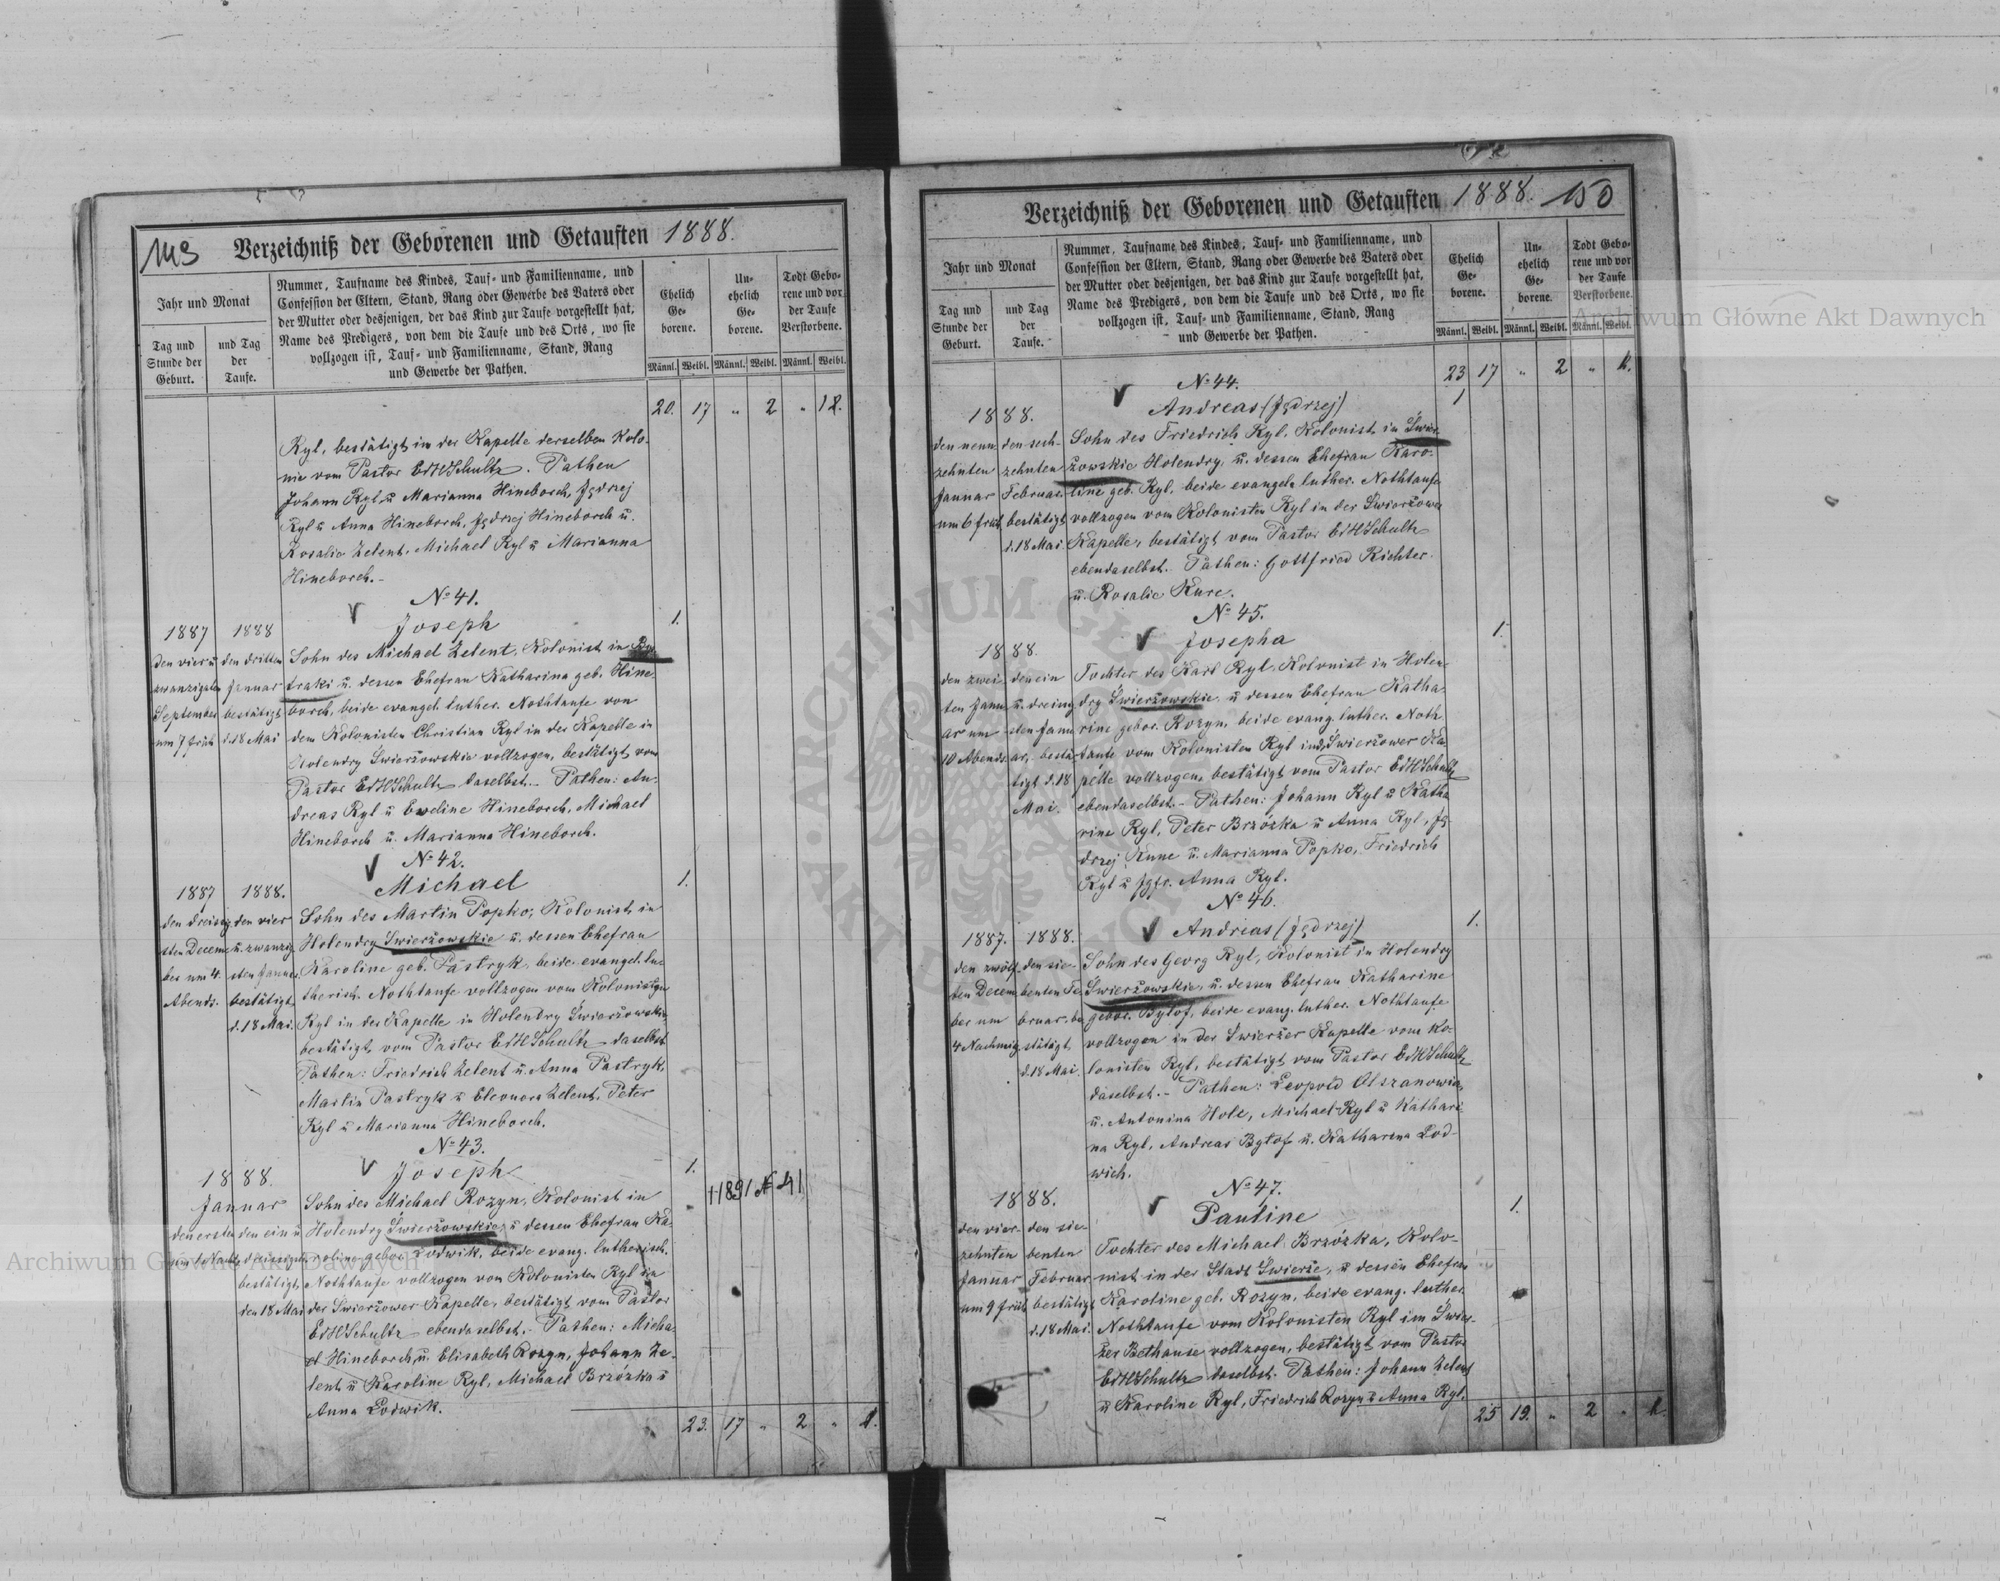 149 Verzeichniß der Geborenen und Getauften 1888.
Jahr und Monat
Tag und Stunde der Geburt.
und Tag der Taufe.
Nummer, Taufname des Kindes, Tauf- und Familienname, und
Confession der Eltern, Stand, Rang oder Gewerbe des Vaters oder
der Mutter oder desjenigen, der das Kind zur Taufe vorgestellt hat,
Name des Predigers, von dem die Taufe und des Orts, wo sie
vollzogen ist, Tauf- und Familienname, Stand, Rang
und Gewerbe der Pathen.
Ehelich Ge- borene.
Un- ehelich Ge- borene.
Todt Gebo- rene und vor der Taufe Verstorbene.
Männl. Weibl. Männl. Weibl. Männl. Weibl.
20. 17 " 2 "
Ryl, bestätigt in der Kapelle derselben Kolo-
nie vom Pastor EdHSchultz. Pathen
Johann Ryl u Marianna Hineborch, Jędrzej
Ryl u Anna Hineborch, Jędrzej Hineborch u.
Rosalie Zelent, Michael Ryl u Marianna
Hineborch.-
No 41.
Joseph 1.
1887 1888
den vier u den dritten
zwanzigsten Januar
September bestätigt
um 7 früh d. 18 Mai
Sohn des Michael Zelent, Kolonist in
traki u. dessen Ehefrau Katharina geb. Hine-
borch, beide evangel. luther. Nothtaufe von
dem Kolonisten Christian Ryl in der Kapelle in
Holendry Świerżowskie vollzogen, bestätigt vom
Pastor EdHSchultz daselbst.- Pathen: An-
dreas Ryl u Eweline Hineborch, Michael
Hineborch u. Marianna Hineborch.
No 42.
Michael 1.
1887 1888.
den dreisig den vier
sten Decem u. zwanzig
ber um 4. sten Januar
Abends. bestätigt
d. 18 Mai.
Sohn des Martin Popko, Kolonist in
Holendry Świerżowskie u. dessen Ehefrau
Karoline geb. Pastryk, beide evangel. lu-
therisch. Nothtaufe vollzogen vom Kolonisten
Ryl in der Kapelle in Holendry Świerżowskie
bestätigt vom Pastor EdHSchultz daselbst
Pathen: Friedrich Zelent u. Anna Pastryk,
Martin Pastryk u Eleonora Zelent, Peter
Ryl u Marianna Hineborch.
No 43.
Joseph 1.
1888.
Januar
den ersten den ein u
dreissigsten
bestätigt
den 18 Mai
+ 1891 N 41
Sohn des Michael Rozyn, Kolonist in
Holendry Świerżowskie u dessen Ehefrau Ka-
roline gebor. Lodwik, beide evang. lutherisch.
Nothtaufe vollzogen vom Kolonisten Ryl in
der Świerżower Kapelle, bestätigt vom Pastor
EdHSchultz ebendaselbst.- Pathen: Micha-
el Hineborch u. Elisabeth Rozyn, Johann Ze-
lent u Karoline Ryl, Michael Brzózka u
Anna Lodwik.
23. 17 " 2 "
Verzeichniß der Geborenen und Getauften 1888. 150
Jahr und Monat
Tag und Stunde der Geburt.
und Tag der Taufe.
Nummer, Taufname des Kindes, Tauf- und Familienname, und
Confession der Eltern, Stand, Rang oder Gewerbe des Vaters oder
der Mutter oder desjenigen, der das Kind zur Taufe vorgestellt hat,
Name des Predigers, von dem die Taufe und des Orts, wo sie
vollzogen ist, Tauf- und Familienname, Stand, Rang
und Gewerbe der Pathen.
Ehelich Ge- borene.
Un- ehelich Ge- borene.
Todt Gebo- rene und vor der Taufe Verstorbene.
Männl. Weibl. Männl. Weibl. Männl. Weibl.
23 17 " 2 "
No 44.
Andreas (Jędrzej) 1
1888.
den neun den sech-
zehnten zehnten
Januar Februar
um 6 früh bestätigt
d. 18 Mai.
Sohn des Friedrich Ryl, Kolonist in Świer-
żowskie Holendry, u. dessen Ehefrau Karo-
line geb. Ryl, beide evangel. luther. Nothtaufe
vollzogen vom Kolonisten Ryl in der Świerżower
Kapelle, bestätigt vom Pastor EdHSchultz
ebendaselbst. Pathen: Gottfried Richter
u. Rosalie Kurc.
No 45.
Josepha 1.
1888.
den zwei- den ein
ten Janu u. dreissig
ar um sten Janu
10 Abends ar, bestä-
tigt d. 18
Mai.
Tochter des Karl Ryl, Kolonist in Holen-
dry Świerżowskie u dessen Ehefrau Katha-
rine gebor. Rozyn, beide evang. luther. Noth-
taufe vom Kolonisten Ryl in d. Świerżower Ka-
pelle vollzogen, bestätigt vom Pastor EdHSchultz
ebendaselbst.- Pathen: Johann Ryl u Katha-
rine Ryl, Peter Brzózka u Anna Ryl, Ję-
drzej Kunc u. Marianna Popko, Friedrich
Ryl u Jgfr. Anna Ryl.
No 46.
Andreas (Jędrzej) 1.
1887. 1888.
den zwölf- den sie-
ten Decem benten Fe-
ber um bruar, be-
4 Nachmitg stätigt
d. 18 Mai.
Sohn des Georg Ryl, Kolonist in Holendry
Świerżowskie, u. dessen Ehefrau Katharine
gebor. Bytof, beide evang. luther. Nothtaufe
vollzogen in der Świerżer Kapelle vom Ko-
lonisten Ryl, bestätigt vom Pastor EdHSchultz
daselbst.- Pathen: Leopold
u. Antonina Hole, Michael Ryl u Kathari-
na Ryl, Andreas Bytof u. Katharina Lod-
wich.
No 47.
Pauline 1.
1888.
den vier- den sie-
zehnten benten
Januar Februar
um 9 früh bestätigt
d. 18 Mai.
Tochter des Michael Brzózka, Kolo-
nist in der Stadt Świerże, u dessen Ehefrau
Karoline geb. Rozyn, beide evang. luther.
Nothtaufe vom Kolonisten Ryl im Świer-
żer Bethause vollzogen, bestätigt vom Pastor
EdHSchultz daselbst. Pathen: Johann Zelent
u Karoline Ryl, Friedrich Rozyn u Anna Ryl.
25 19. " 2 "
Archiwum Główne Akt Dawnych
Archiwum Główne Akt Dawnych